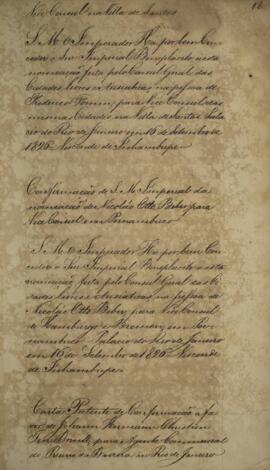 Vice Consul na Villa de Santos
S. M. O Imperador Ha por bem Con
ceder o Seu Imperial Beneplacito a esta
nomeação feita pelo Consul Geral das
Cidades livres e Anseaticas na pessoa de
Frederico Fomm, para Vice Consul das
mesmas Cidades na Villa de Santos. Pala
cio do Rio de Janeiro em 16 de Setembro de
1826. Visconde de Inhambupe
Confirmação de S. M. Imperial da
nomeação de Nicolão Otto Bieber para
Vice Consul em Pernambuco
S. M. O Imperador Ha por bem Con
ceder o Seu Imperial Beneplacito a esta
nomeação feita pelo Consul Geral das Ci
dades livres e Anseaticas, na pessoa de
Nicolão Otto Bieber, para Vice Consul
de Hamburgo e Bremen, em Per
nambuco. Palacio do Rio de Janeiro
em 16 de Setembro de 1826. Viscon
de de Inhambupe
Carta Patente de Confirmação a fa
vor de Johann Hermann Christian
para Agente Commercial
do Reino da Baviera no Rio de Janeiro